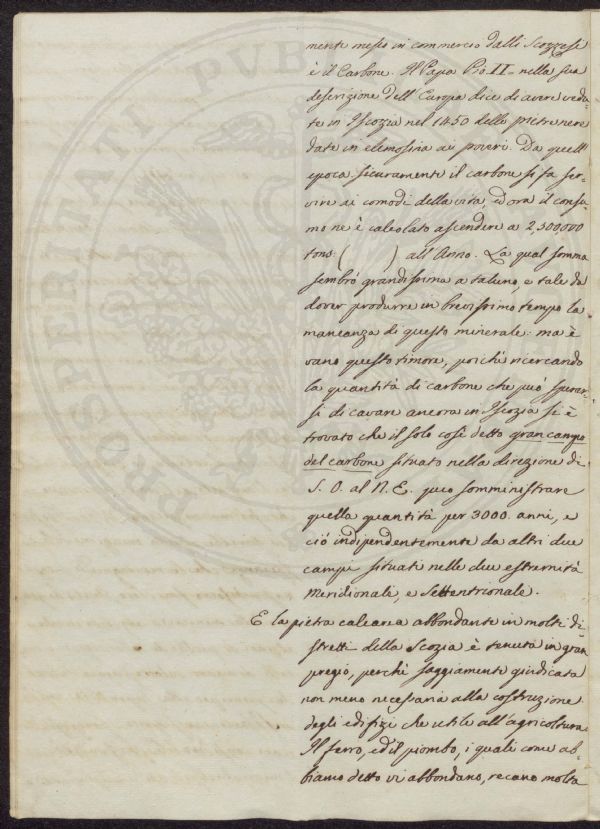 mente messo in commercio dalli Scozzesi
è il Carbone. Il Papa Pio II nella sua
descrizione dell'Europa dice di avere vedu-
te in Iscozia nel 1450 delle pietre nere
date in elemosina ai poveri. Da quell'
epoca sicuramente il carbone si fa ser-
vire ai comodi della vita, ed ora il consu-
mo ne è calcolato ascendere a 2,500,000
tons: (        ) all'Anno. La qual somma
sembrò grandissima a taluno, e tale da
dover produrre in brevissimo tempo la
mancanza di questo minerale: ma è
vano questo timore, poichè ricercando
la quantità di carbone che può sperar-
si di cavare ancora in Iscozia si è
trovato che il solo così detto gran campo
del carbone situato nella direzione di
S. O. al N. E. può somministrare
quella quantità per 3000 anni, e
ciò indipendentemente da altri due
campi situati nelle due estremità
Meridionale, e Settentrionale.
E la pietra calcarea abbondante in molti di-
stretti della Scozia è tenuta in gran
pregio, perchè saggiamente giudicata
non meno necessaria alla costruzione
degli edifizi che utile all'agricoltura.
Il ferro, ed il piombo, i quali come ab-
biamo detto vi abbondano, recano molta
PROSPERITATI PVBL